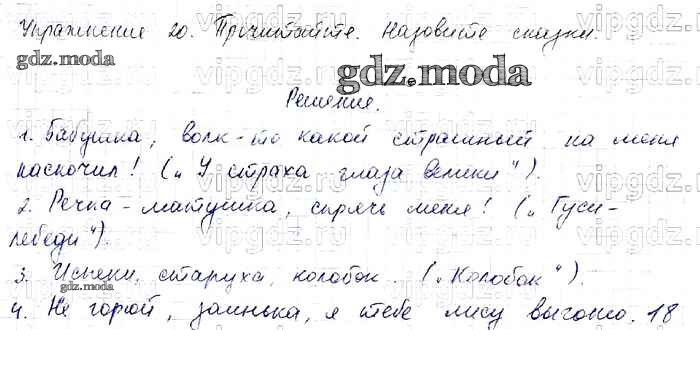 Упражнение 20. Прочитайте. Назовите сказки.
gdz.moda
gdz.moda
Решение.
1. Бабушка, волк-то какой страшный на меня
наскочил! („У страха глаза велики“).
2. Речка-матушка, спрячь меня! („Гуси-
лебеди“).
3. Испеки, старуха, колобок. („Колобок“).
gdz.moda
4. Не горюй, заинька, я тебе лису выгоню. 18